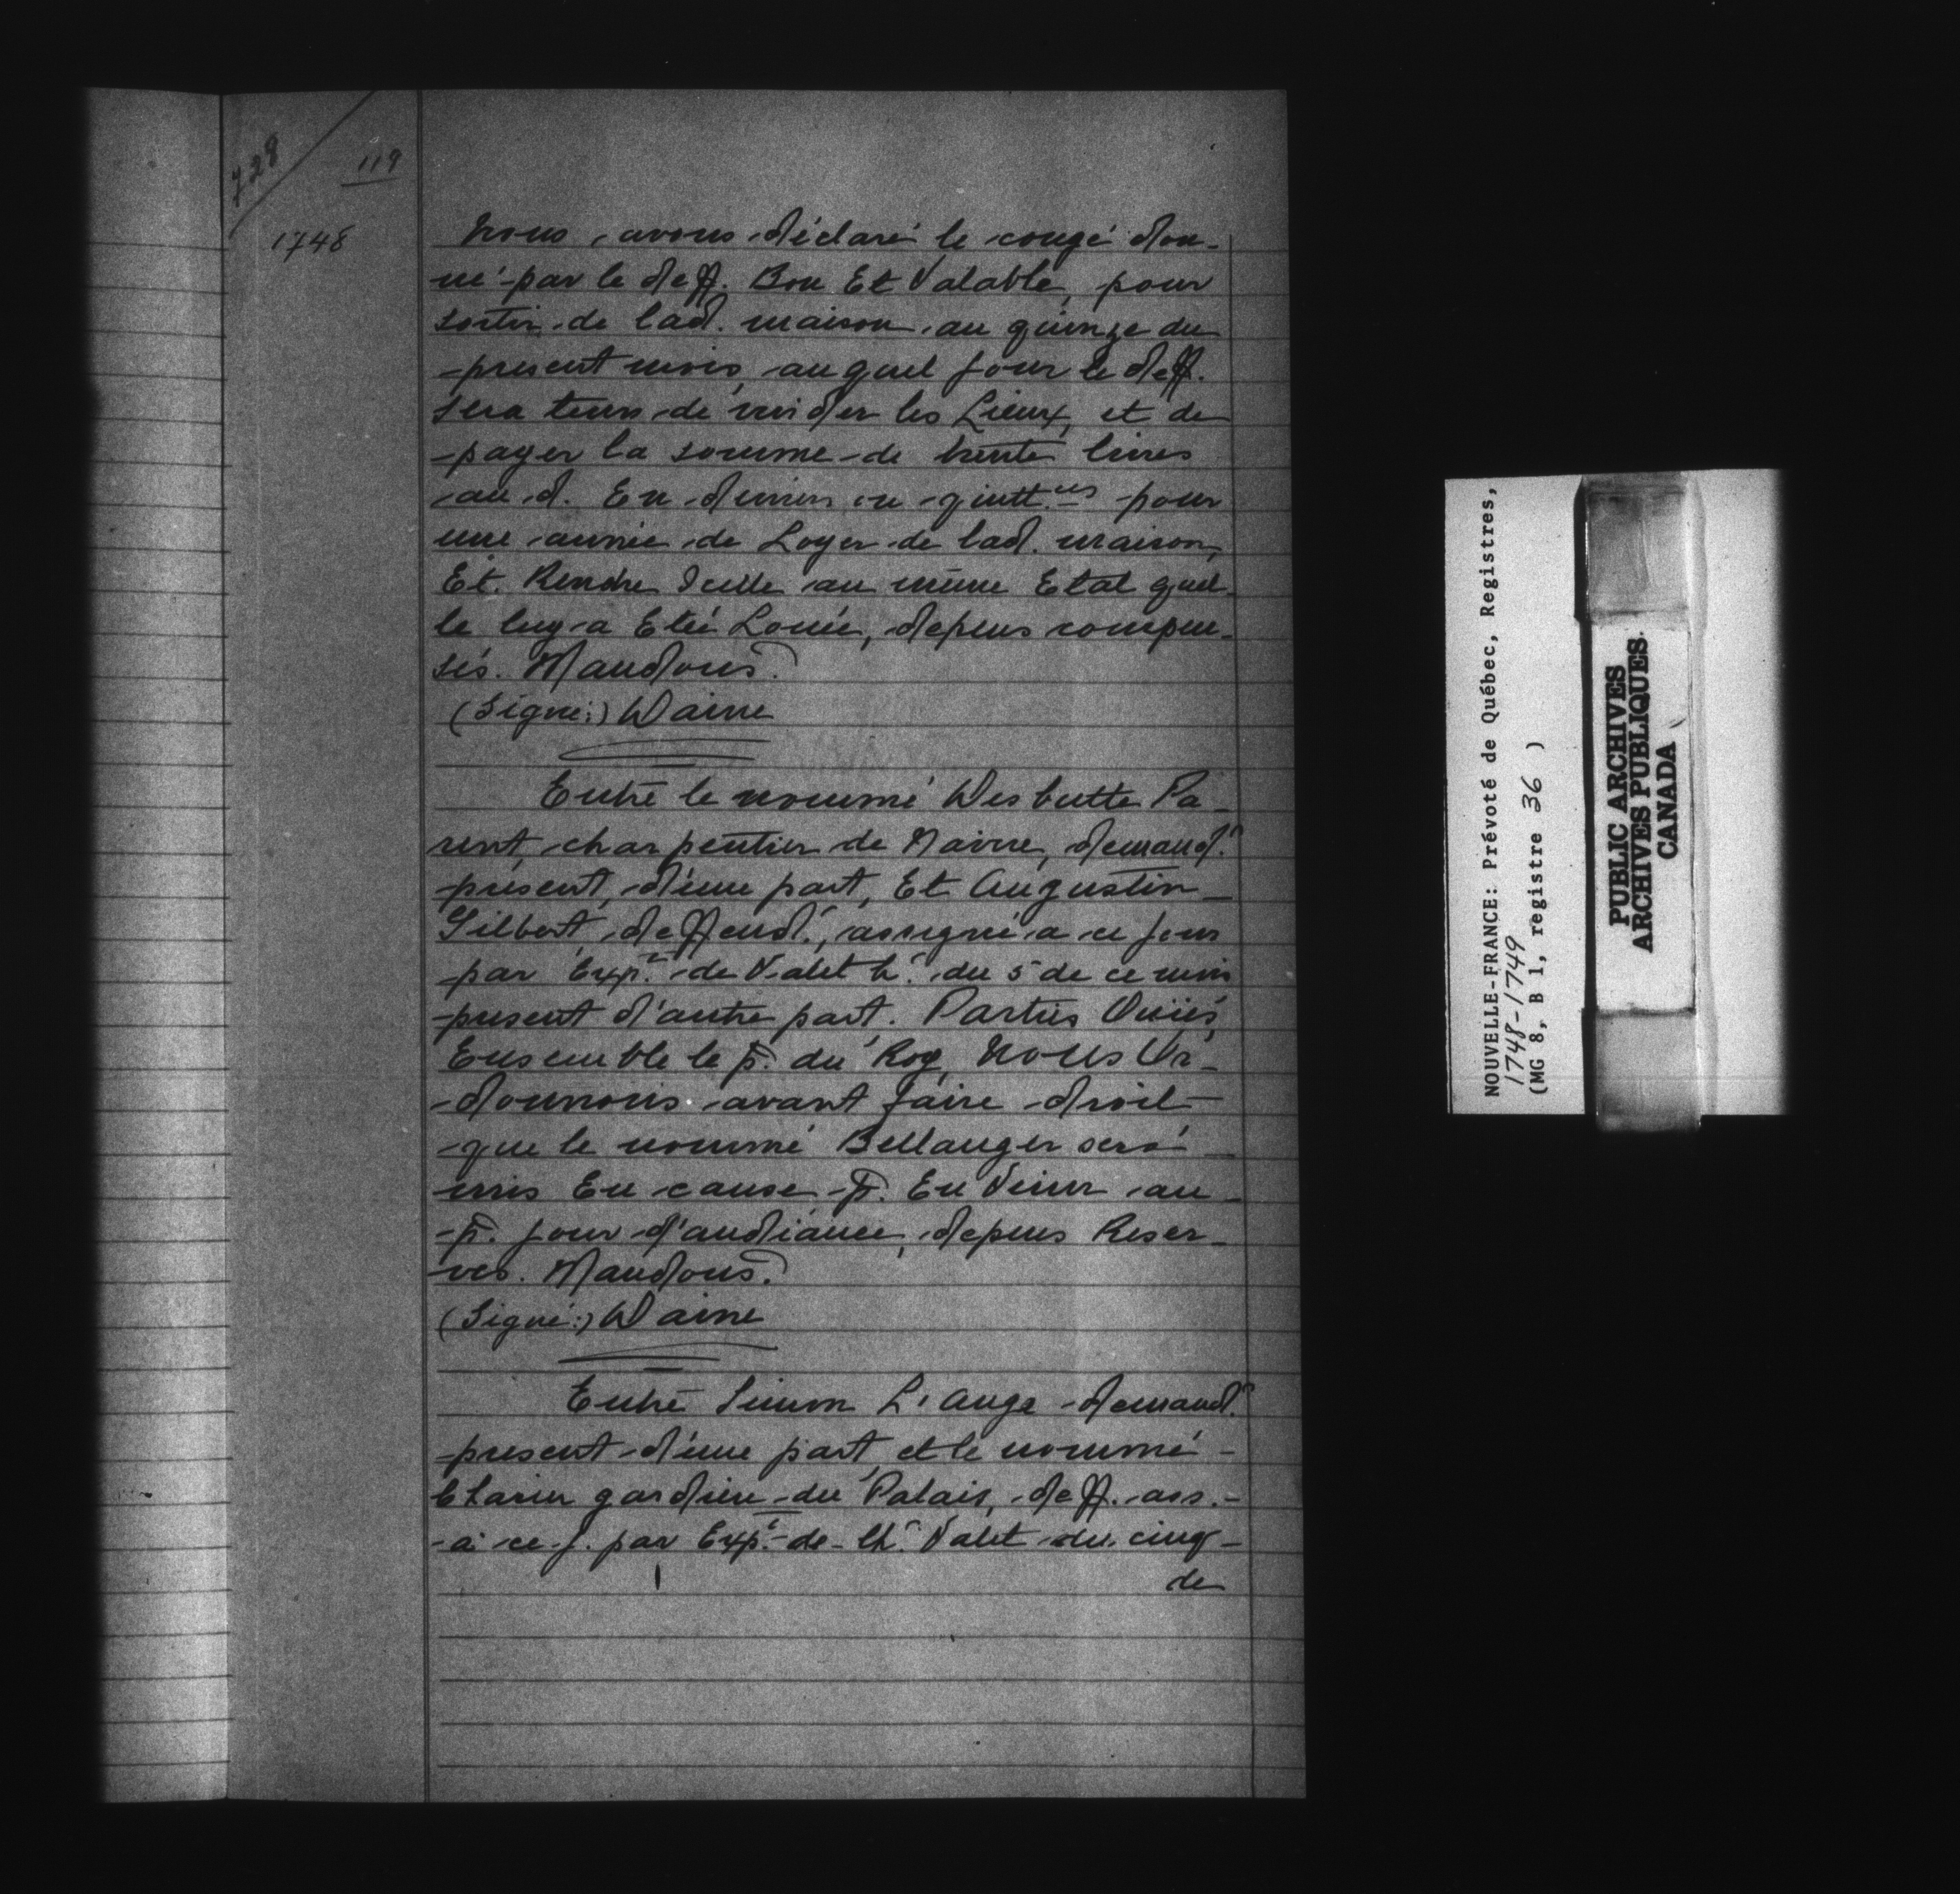 728
119
1748
Nous avons déclaré le congé don-
né par le deff. Bon Et Valable, pour
sortir de lad. maison au quinze du
present mois, auquel jour le deff.
sera tenu de vuider les Lieux, et de
payer la somme de trente livres
au d. En deniers ou quitt.ces pour
une année de Loyer de lad. maison,
Et Rendre Icelle au même Etat quel-
le luy a Eté Louée, depens compen-
sés. Mandons.
(Signé:) Daine
Entre le nommé Pa-
rent, charpentier de Navire, demand.r
présent, d'une part, Et Augustin
Gilbert, deffend.r, assigné a ce jour
par Exp.t de Valet h.r du 5 de ce mois
present d'autre part. Parties Ouïes,
Ensemble le p. du Roy, Nous Or-
donnons avant faire droit
que le nommé Bellanger sera
mis En cause p. En Venir au
p. jour d'audiance, depens Reser-
vés. Mandons.
(Signé:) Daine
Entre Simon L'Ange demand.r
present d'une part, et le nommé
gardien du Palais, deff. ass.
a ce j. par Exp.t de Valet du cinq
de
NOUVELLE-FRANCE: Prévoté de Québec, Registres,
1748-1749
(MG 8, B 1, registre 36 )
PUBLIC ARCHIVES
ARCHIVES PUBLIQUES
CANADA